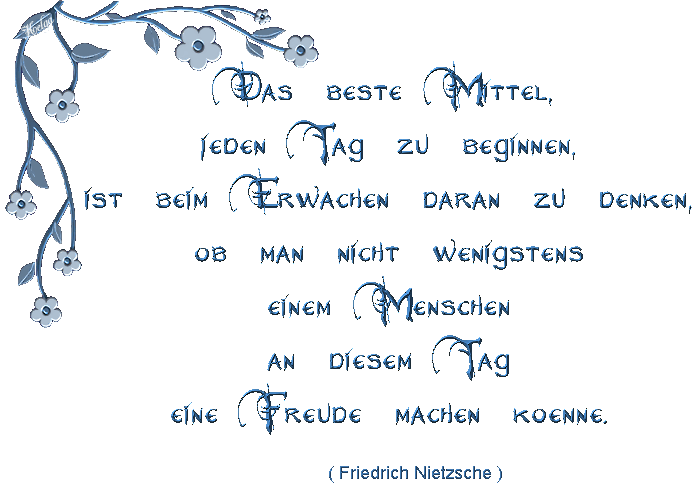 Das beste Mittel,
jeden Tag zu beginnen,
ist beim Erwachen daran zu denken,
ob man nicht wenigstens
einem Menschen
an diesem Tag
eine Freude machen koenne.
( Friedrich Nietzsche )